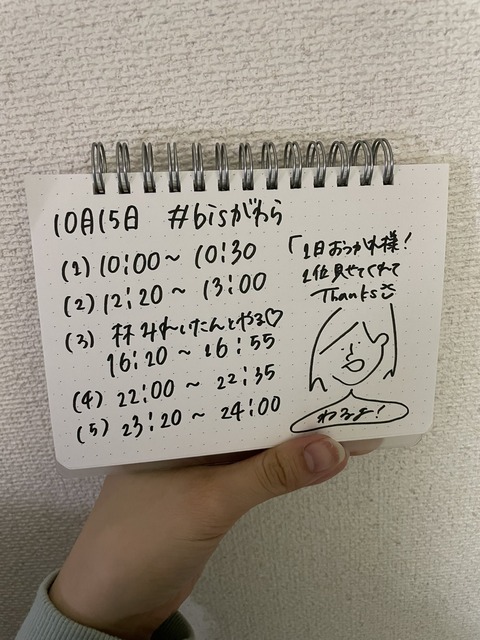 10月15日 #bisがわら
(1) 10:00〜10:30
(2) 12:20〜13:00
(3)
16:20〜16:55
(4) 22:00〜22:35
(5) 23:20〜24:00
「1日おつかれ様!
1位見せてくれて
Thanks
わるよ!